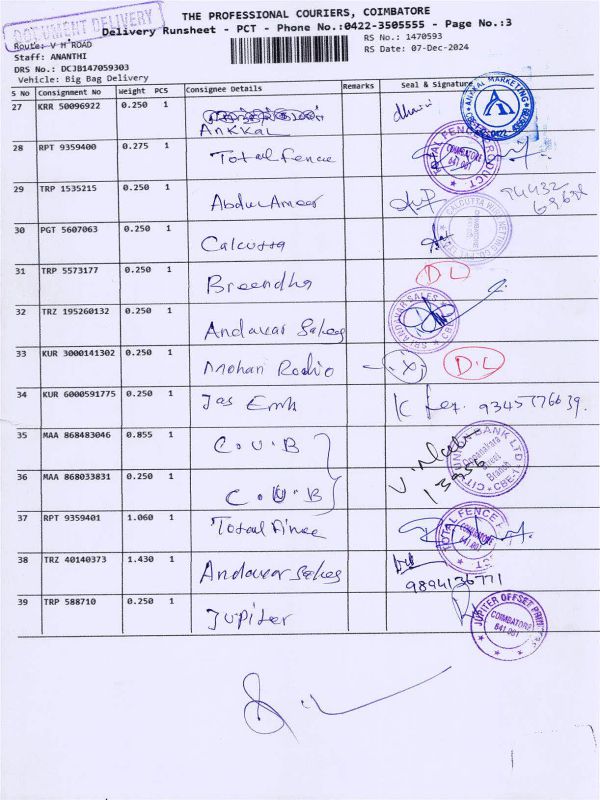 DOCUMENT DELIVERY
THE PROFESSIONAL COURIERS, COIMBATORE
Delivery Runsheet - PCT - Phone No.:0422-3505555 - Page No.:3
Route: V H ROAD
RS No.: 1470593
Staff: ANANTHI
RS Date: 07-Dec-2024
DRS No.: DCJB147059303
Vehicle: Big Bag Delivery
S No Consignment No Weight PCS Consignee Details Remarks Seal & Signature
27 KRR 50096922 0.250 1
Ankkal
28 RPT 9359400 0.275 1 Total Fence
TOTAL FENCE PRODUCT COIMBATORE 641 001
29 TRP 1535215 0.250 1 Abdul Ameer
94432
30 PGT 5607063 0.250 1 Calcutta
31 TRP 5573177 0.250 1 Breendha DL
32 TRZ 195260132 0.250 1 Andavar Sales
SRI ANDAVAR SALES CBE
33 KUR 3000141302 0.250 1 Mohan Radio D.L
34 KUR 6000591775 0.250 1 Jas Emb
35 MAA 868483046 0.855 1 C.U.B
CITY UNION BANK LTD Oppanakara Street Branch CBE-1
36 MAA 868033831 0.250 1 C.U.B
13956
37 RPT 9359401 1.060 1
TOTAL FENCE
38 TRZ 40140373 1.430 1 Andavar Sales
9894136771
39 TRP 588710 0.250 1 Jupiter
JUPITER OFFSET PRINTERS COIMBATORE 641.001